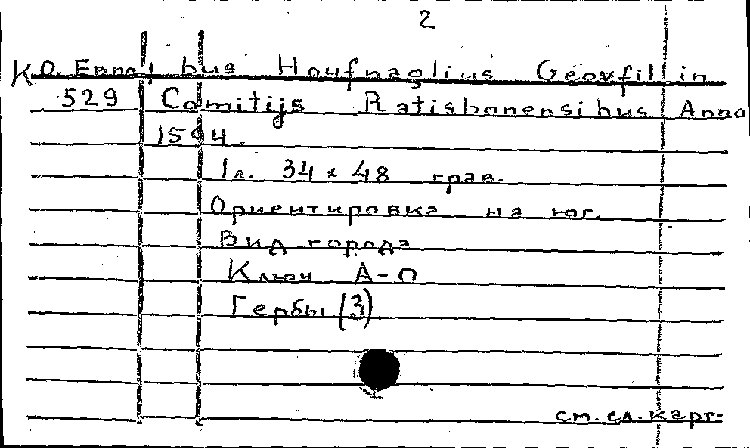 2
К.О. Европ. bus Houfnaglius Georgfil in
529 Comitijs Ratisbonensibus Anno
1594.
1л. 34 x 48 грав.
Ориентировка на юг.
Вид города
Ключ А-О
Гербы (3)
см. сл. карт-